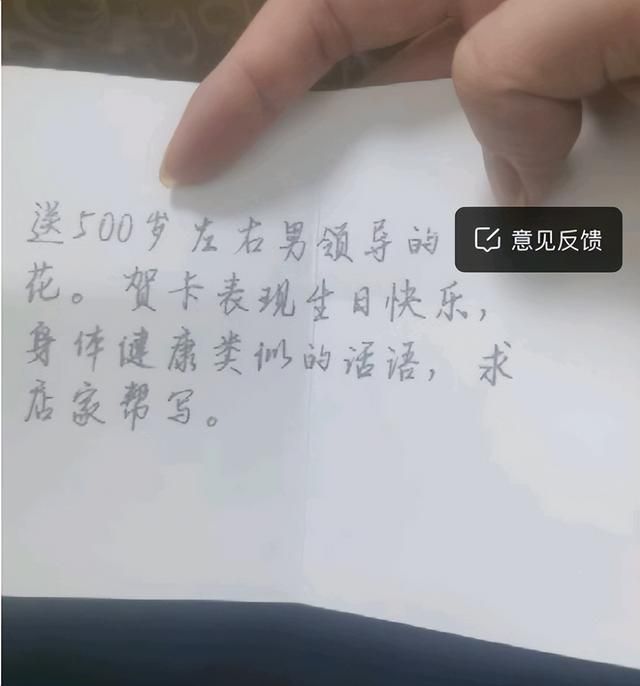 送500岁左右男领导的
意见反馈
花。贺卡表现生日快乐，
身体健康类似的话语，求
店家帮写。